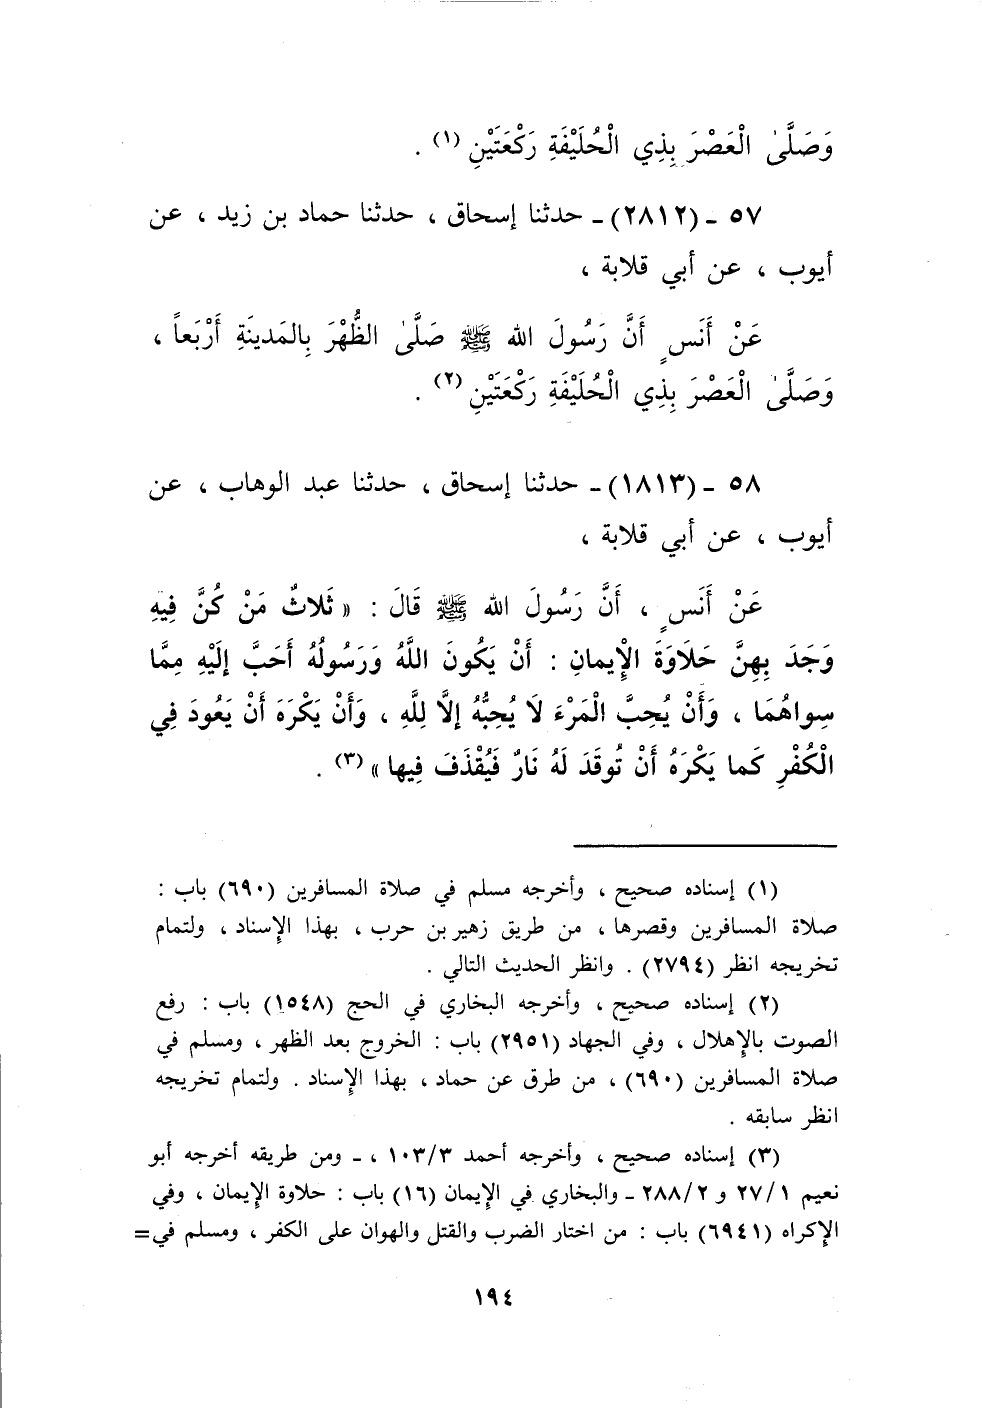 وَصَلَّىٰ الْعَصْرَ بِذِي الْحُلَيْفَةِ رَكْعَتَيْنِ (١) .
٥٧ ـ (٢٨١٢) ـ حدثنا إسحاق ، حدثنا حماد بن زيد ، عن
أيوب ، عن أبي قلابة ،
عَنْ أَنَسٍ أَنَّ رَسُولَ الله ﷺ صَلَّىٰ الظُّهْرَ بِالمَدينَةِ أَرْبَعاً ،
وَصَلَّىٰ الْعَصْرَ بِذِي الْحُلَيْفَةِ رَكْعَتَيْنِ (٢) .
٥٨ ـ (١٨١٣) ـ حدثنا إسحاق ، حدثنا عبد الوهاب ، عن
أيوب ، عن أبي قلابة ،
عَنْ أَنَسٍ ، أَنَّ رَسُولَ الله ﷺ قَالَ : « ثَلاثٌ مَنْ كُنَّ فِيهِ
وَجَدَ بِهِنَّ حَلَاوَةَ الْإِيمانِ : أَنْ يَكُونَ اللَّهُ وَرَسُولُهُ أَحَبَّ إلَيْهِ مِمَّا
سِواهُمَا ، وَأَنْ يُحِبَّ الْمَرْءَ لَا يُحِبُّهُ إلَّا لِلَّهِ ، وَأَنْ يَكْرَهَ أَنْ يَعُودَ فِي
الْكُفْرِ كَما يَكْرَهُ أَنْ تُوقَدَ لَهُ نَارٌ فَيُقْذَفَ فِيها » (٣) .
(١) إسناده صحيح ، وأخرجه مسلم في صلاة المسافرين (٦٩٠) باب :
صلاة المسافرين وقصرها ، من طريق زهير بن حرب ، بهذا الإسناد ، ولتمام
تخريجه انظر (٢٧٩٤) . وانظر الحديث التالي .
(٢) إسناده صحيح ، وأخرجه البخاري في الحج (١٥٤٨) باب : رفع
الصوت بالإهلال ، وفي الجهاد (٢٩٥١) باب : الخروج بعد الظهر ، ومسلم في
صلاة المسافرين (٦٩٠) ، من طرق عن حماد ، بهذا الإسناد . ولتمام تخريجه
انظر سابقه .
(٣) إسناده صحيح ، وأخرجه أحمد ١٠٣/٣ ، ـ ومن طريقه أخرجه أبو
نعيم ٢٧/١ و ٢٨٨/٢ ـ والبخاري في الإيمان (١٦) باب : حلاوة الإيمان ، وفي
الإكراه (٦٩٤١) باب : من اختار الضرب والقتل والهوان على الكفر ، ومسلم في=
١٩٤